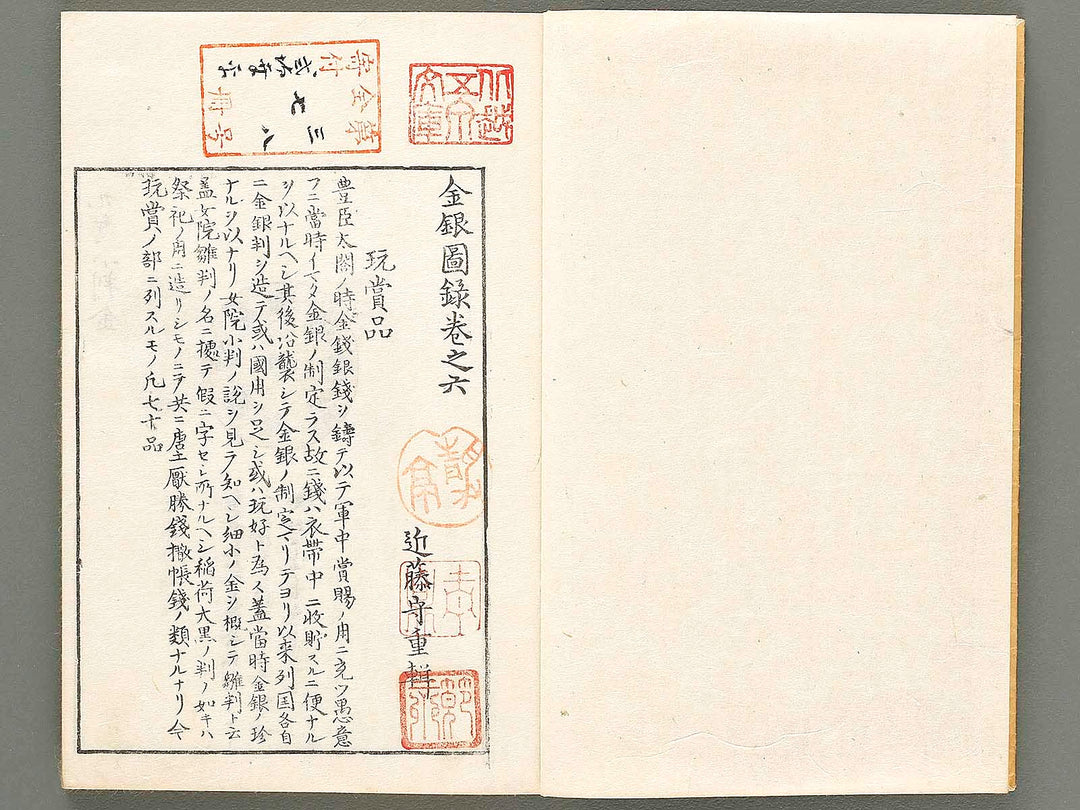 金銀圖錄卷之六
近藤守重輯
玩賞品
豊臣太閤ノ時金錢銀錢ヲ鑄テ以テ軍中賞賜ノ用ニ充ツ愚意
フニ當時イマタ金銀ノ制定ラス故ニ錢ハ衣帶中ニ收貯スルニ便ナル
ヲ以ナルヘシ其後沿襲シテ金銀ノ制定マリテヨリ以来列国各自
ニ金銀判ヲ造テ或ハ國用ヲ足シ或ハ玩好ト為ス蓋當時金銀ノ珍
ナルヲ以ナリ女院小判ノ説ヲ見テ知ヘシ細小ノ金ヲ概シテ雛判ト云
蓋女院雛判ノ名ニ據テ假ニ字セシ所ナルヘシ稲荷大黒ノ判ノ如キハ
祭祀ノ用ニ造リシモノニテ共ニ唐土厭勝錢撒帳錢ノ類ナルナリ今
玩賞ノ部ニ列スルモノ凡七十品
竹越文庫
寄付
金第
三八
七
冊号